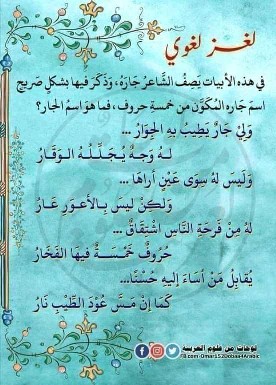 لغز لغوي
في هذه الأبيات يَصِفُ الشَّاعرُ جَارَهُ، وذَكَرَ فيها بشكلٍ صَريحٍ
اسمَ جَارِه المُكَوَّن من خمسةِ حروف، فما هوَ اسمُ الجار؟
وَلِيْ جَارٌ يَطِيْبُ بِهِ الجِوَارُ ...
لَهُ وَجهٌ يُجَلِّلُهُ الوَقَارُ
وَلَيسَ لهُ سِوَى عَيْنٍ أراهَا ...
وَلكِنْ ليسَ بِالأعوَرِ عَارُ
لهُ مِنْ فَرحَةِ النَّاسِ اشتِقَاقٌ ...
حُرُوفٌ خَمْسَةٌ فيهَا الفَخَارُ
يُقَابِلُ مَنْ أسَاءَ إليهِ حُسْنًا...
كَمَا إنْ مَسَّ عُوْدَ الطِّيْبِ نَارُ
لوحات من علوم العربية